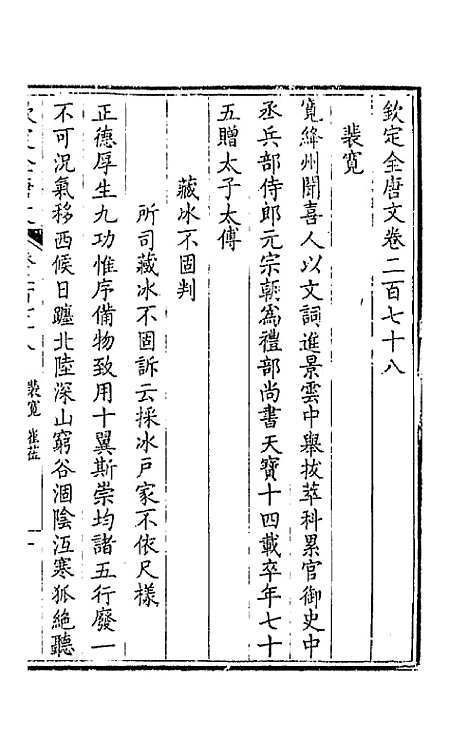 欽定全唐文卷二百七十八
裴寬
寬絳州聞喜人以文詞進景雲中舉拔萃科累官御史中
丞兵部侍郎元宗朝爲禮部尚書天寶十四載卒年七十
五贈太子太傅
藏冰不固判
所司藏冰不固訴云採冰戶家不依尺樣
正德厚生九功惟序備物致用十翼斯崇均諸五行廢一
不可況氣移西候日躔北陸深山窮谷涸陰沍寒狐絶聽
裴寬 崔莅
一